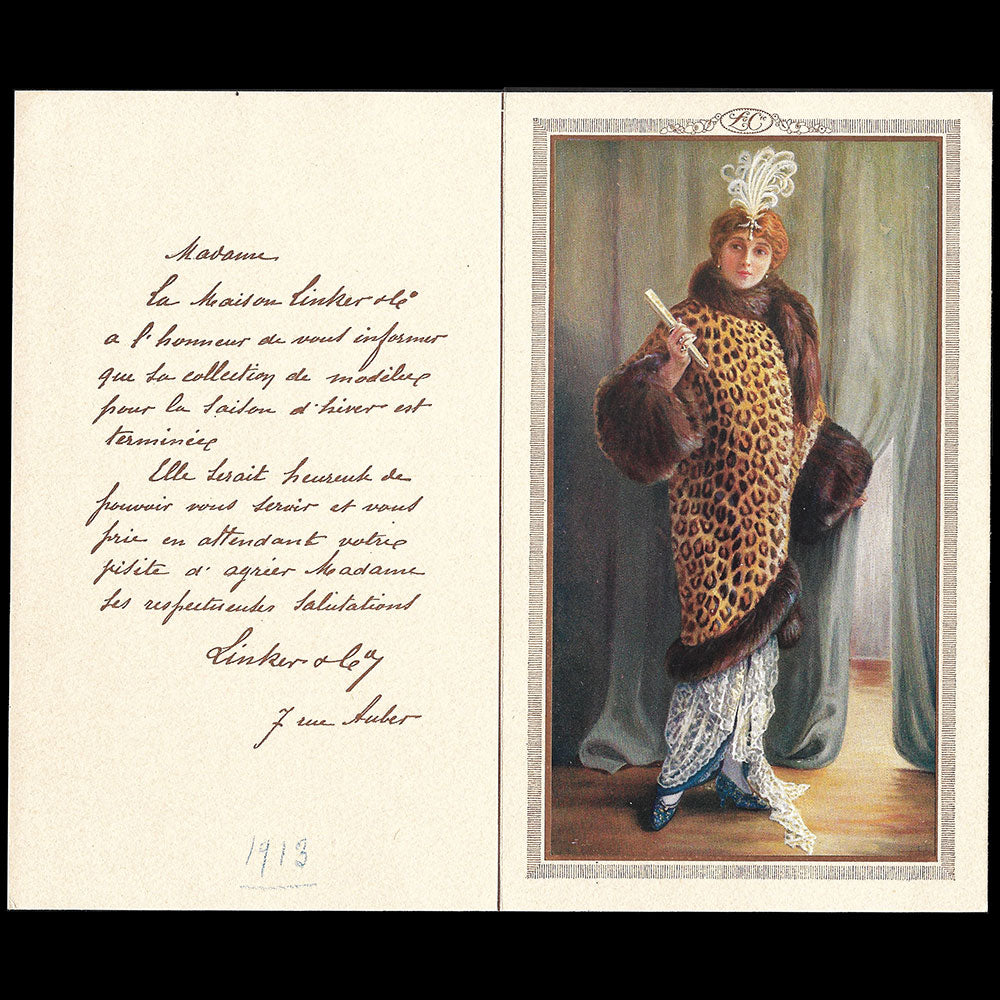 Madame
La Maison Linker & Cº
a l'honneur de vous informer
que sa collection de modèles
pour la saison d'hiver est
terminée
Elle serait heureuse de
pouvoir vous servir et vous
prie en attendant votre
visite d'agréer Madame
ses respectueuses salutations
Linker & Cº
7 rue Auber
1913
L & Cie